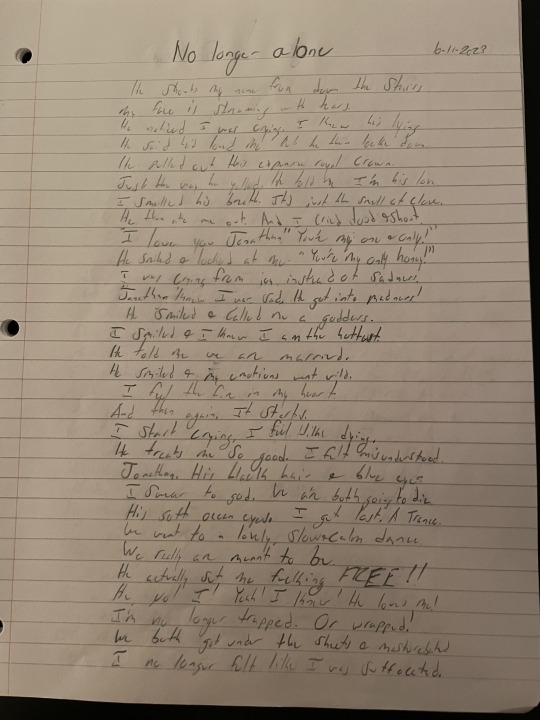 No longer alone
6-11-2023
He shouts my name from down the stairs
my face is streaming with tears.
He noticed I was crying. I knew he's lying
He said he's loved me. But he then down
He pulled out this expensive royal crown.
Just the way he yelled. He told me I'm his love
I smelled his breath. It's just the smell of clove.
He then ate me out. And I cried loud & shout
"I love you Jonathan" You're my one & only!"
He smiled & looked at me. "You're my only honey!"
I was crying from joy, instead of sadness
Jonathan knew I was sad. He got into madness!
He smiled & called me a goddess.
I smiled & I knew I am the hottest
He told me we are married.
He smiled & my emotions went wild.
I feel the fire in my heart
And then again, It starts.
I start crying, I feel like dying.
He treats me so good. I felt misunderstood.
Jonathan. His black hair & blue eyes
I swear to god. We are both going to die
His soft ocean eyes. I get lost. A Trance.
We went to a lovely, slow & calm dance
We really are meant to be
He actually set me fucking FREE!!
He I! Yeah! I knew! He loves me!
I'm no longer trapped. Or wrapped!
We both got under the sheets & masturbated
I no longer felt like I was suffocated.